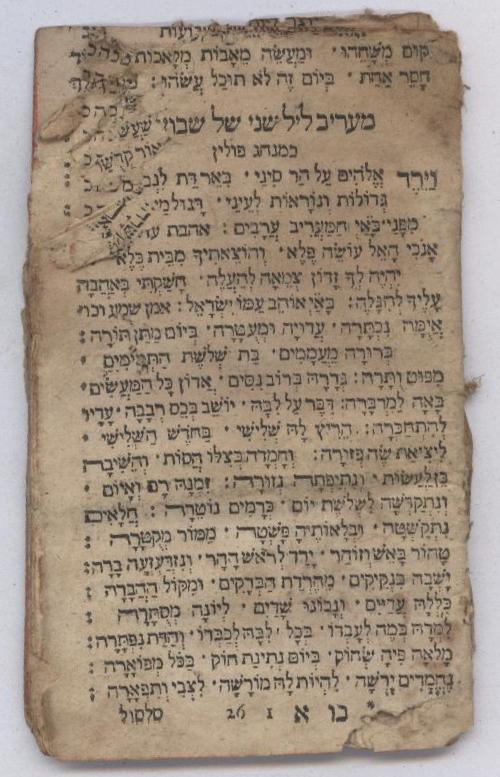 קום משחהו · ומעשה מאבות מלאכות
חסר אחת · ביום זה לא תוכל עשהו :
מעריב ליל שני של שבו
כמנהג פולין
וירד אלהים על הר סיני · באר דת
גדולות ונוראות לעיני ·
מפני באי המעריב ערבים : אהבת
אנכי האל עושה פלא · והוצאתיך מבית כלא
יהיה לך זדון צמאה להעלה · חשקתי באהבה
עליך להגלה :  אוהב עמו ישראל : אמן שמע וכו
איומה נכתרה · עדויה ומעטרה · ביום מתן תורה :
ברורה מעממים · בת שלשת התמימים ·
 ותרה : גררה ברוב נסים · אדון כל המעשים
באה למדברה : דבר על לבה · יושב בכס רבבה · עדיו
להתחברה : הריץ לה שלישי · בחדש השלישי ·
ליציאת שה פזורה : וחמדה בצלו חסות · והשיבה
 ונתיפתה גזורה : זמנה רם ואיום ·
ונתקדשה לשלשת יום · כרמים נוטרה : חלאים
נתקשטה · ובלאותיה פשטה · ממור מקטרה :
טהור באש וזוהר · ירד לראש ההר · ונזדעזעה ברה :
ישבה בנקיקים · מחרדת הברקים · ומקול הגברה :
כללה עדיים · ונבונו שדים · ליונה מסתרה :
למדה במה לעבדו · בכל לבה לכבדו · והדת נפתרה :
מלאה פיה שחוק · ביום נתינת חוק · בכל מפוארה :
נחמדים ירשה · להיות לה מורשה · לצבי ותפארה :
בו א 1 26 סלסול